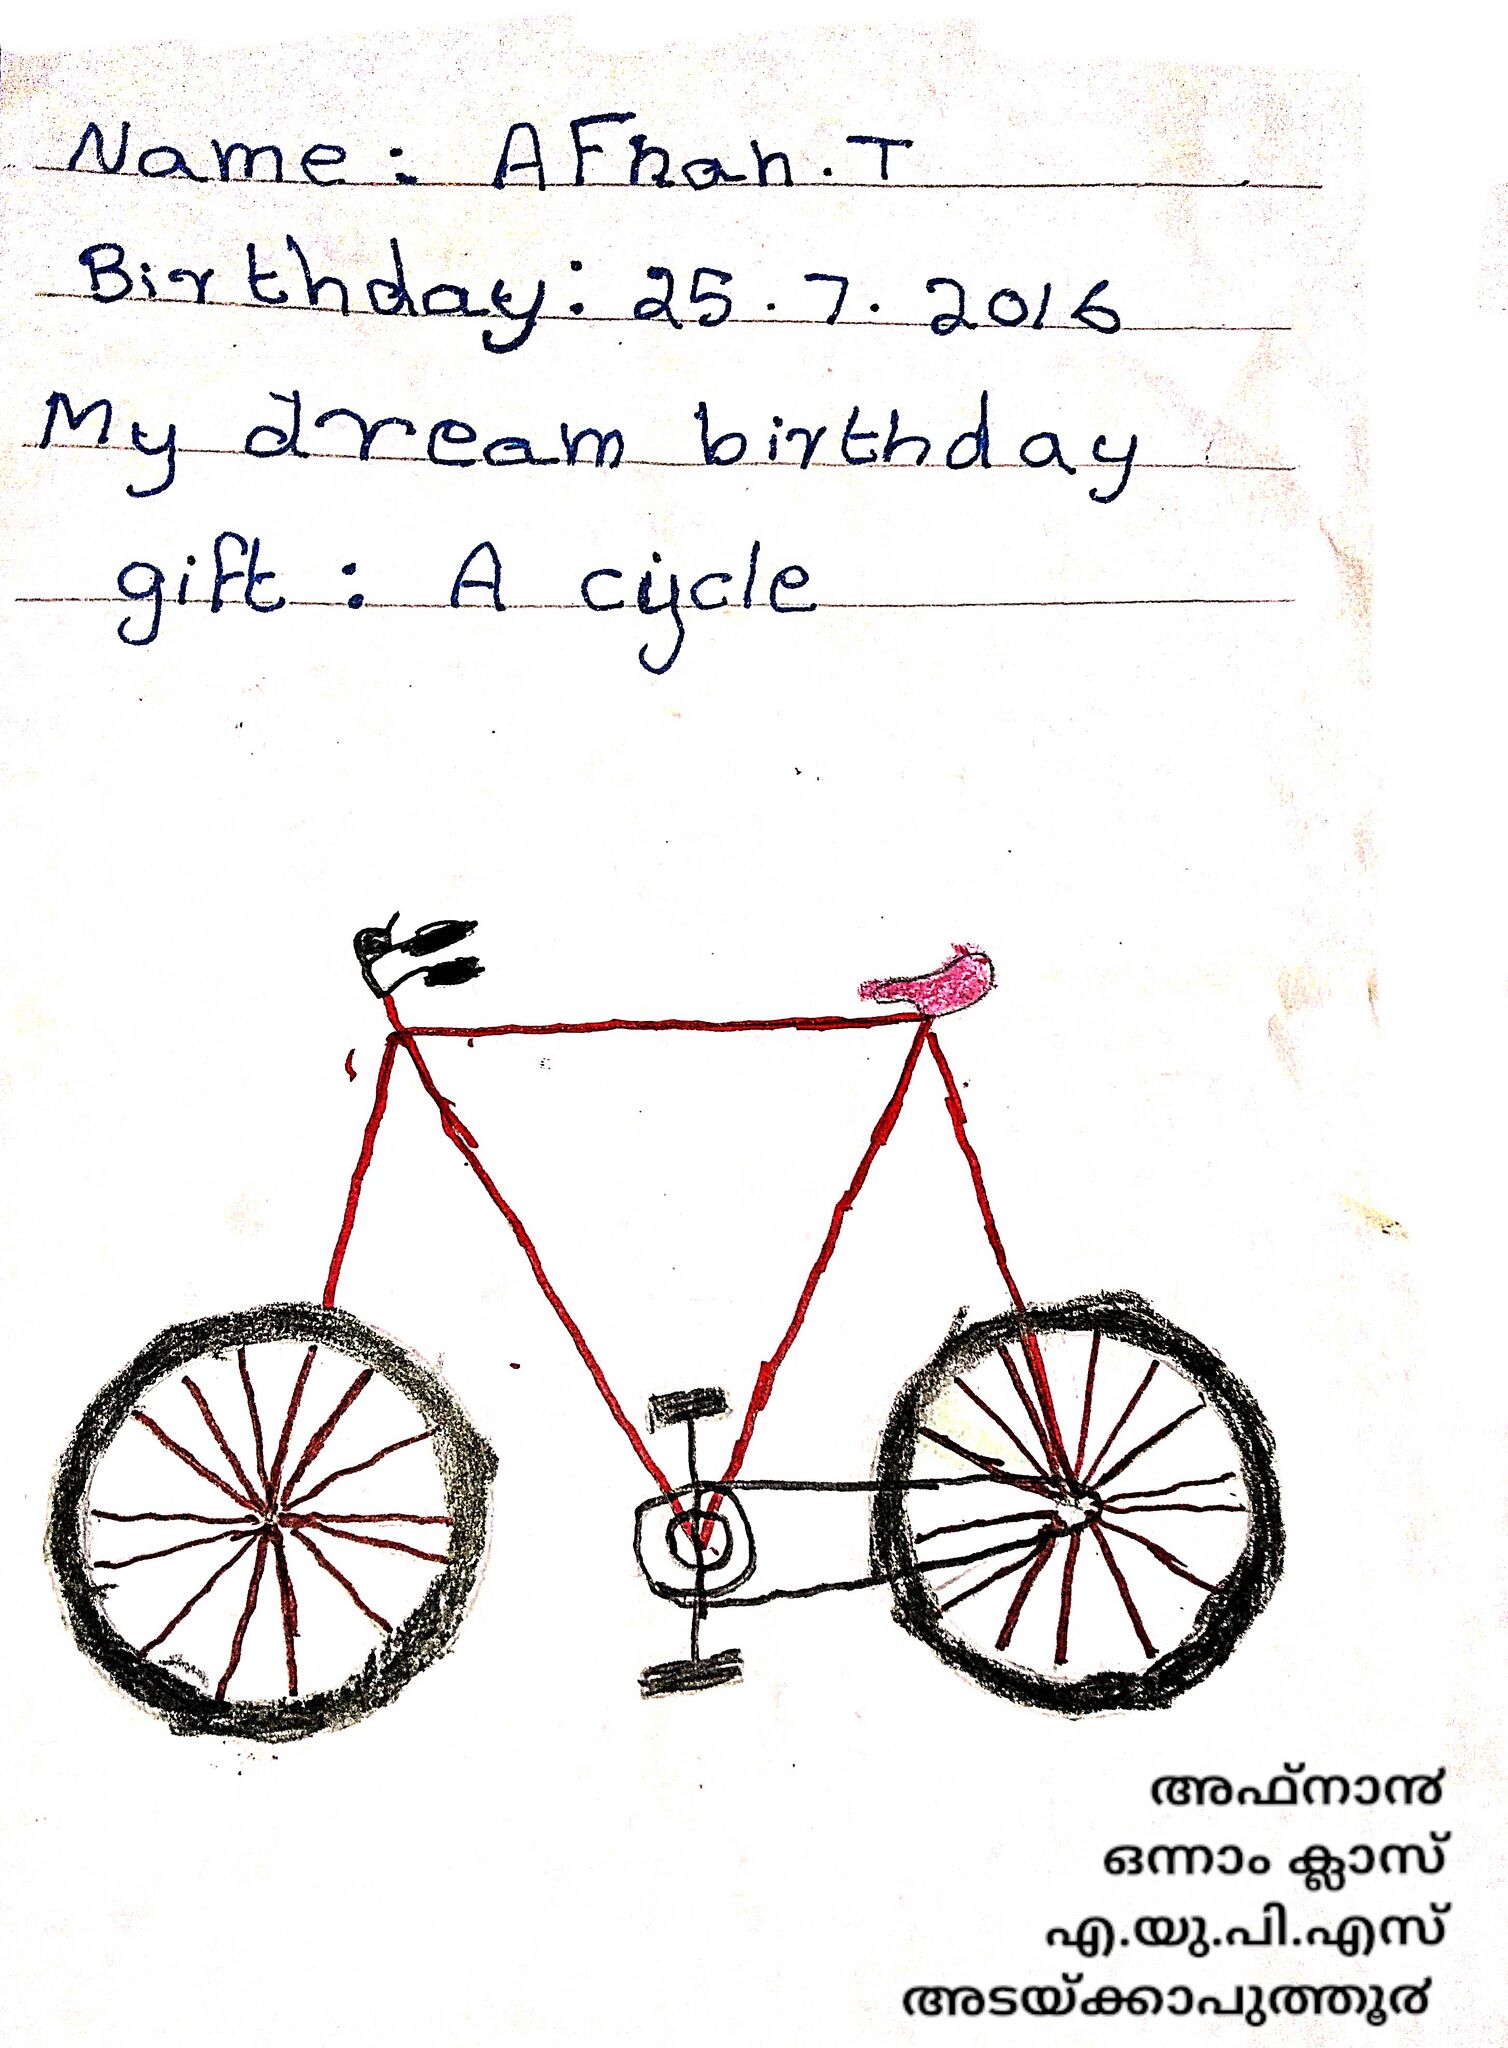 Name: AFnan.T
Birthday: 25.7.2016
My dream birthday
gift: A cycle
അഫ്നാൻ
ഒന്നാം ക്ലാസ്
എ.യു.പി.എസ്
അടയ്ക്കാപുത്തൂർ